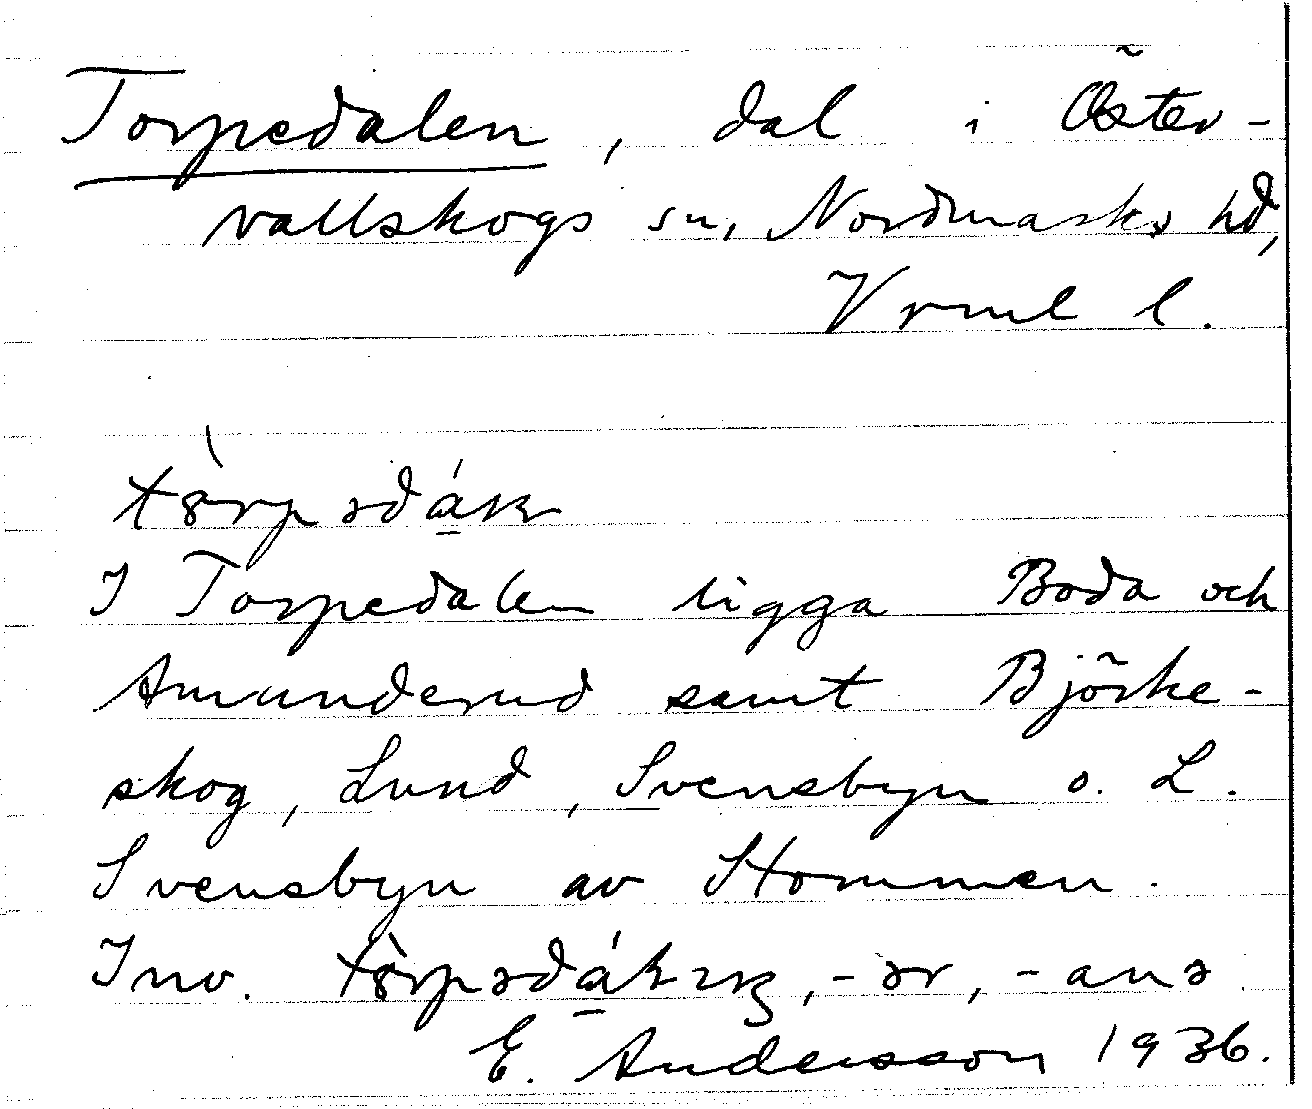 Torpedalen, dal i Öster-
vallskogs sn, Nordmarks hd,
Vrml l.
I Torpedalen ligga Boda och
Amunderud samt Björke-
skog, Lund, Svensbyn o. L.
Svensbyn av Stommen.
Inv. , -ər, -anə
E. Andersson 1936.